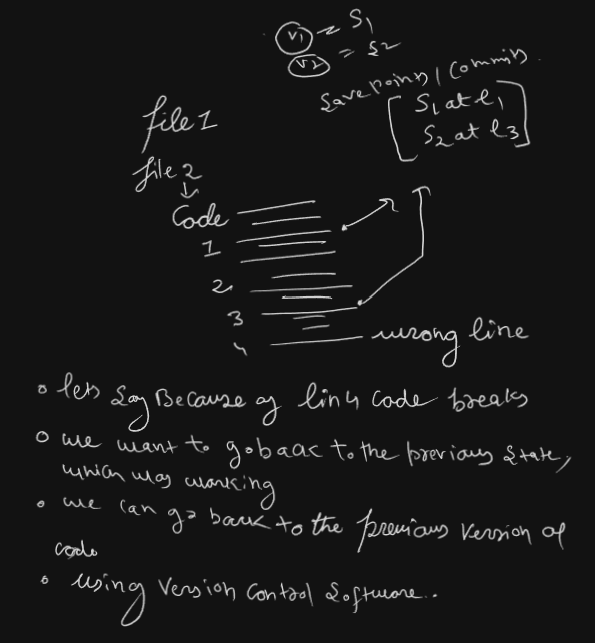 V1 ~ S1
V2 = S2
Save Points / Commits
S1 at l1
S2 at l3
file 1
file 2
Code
1
2
3
4 wrong line
lets Say Because of lin4 code breaks
we want to go baac to the previous state,
which was working
we can go back to the previous version of
code
using Version Control Software..